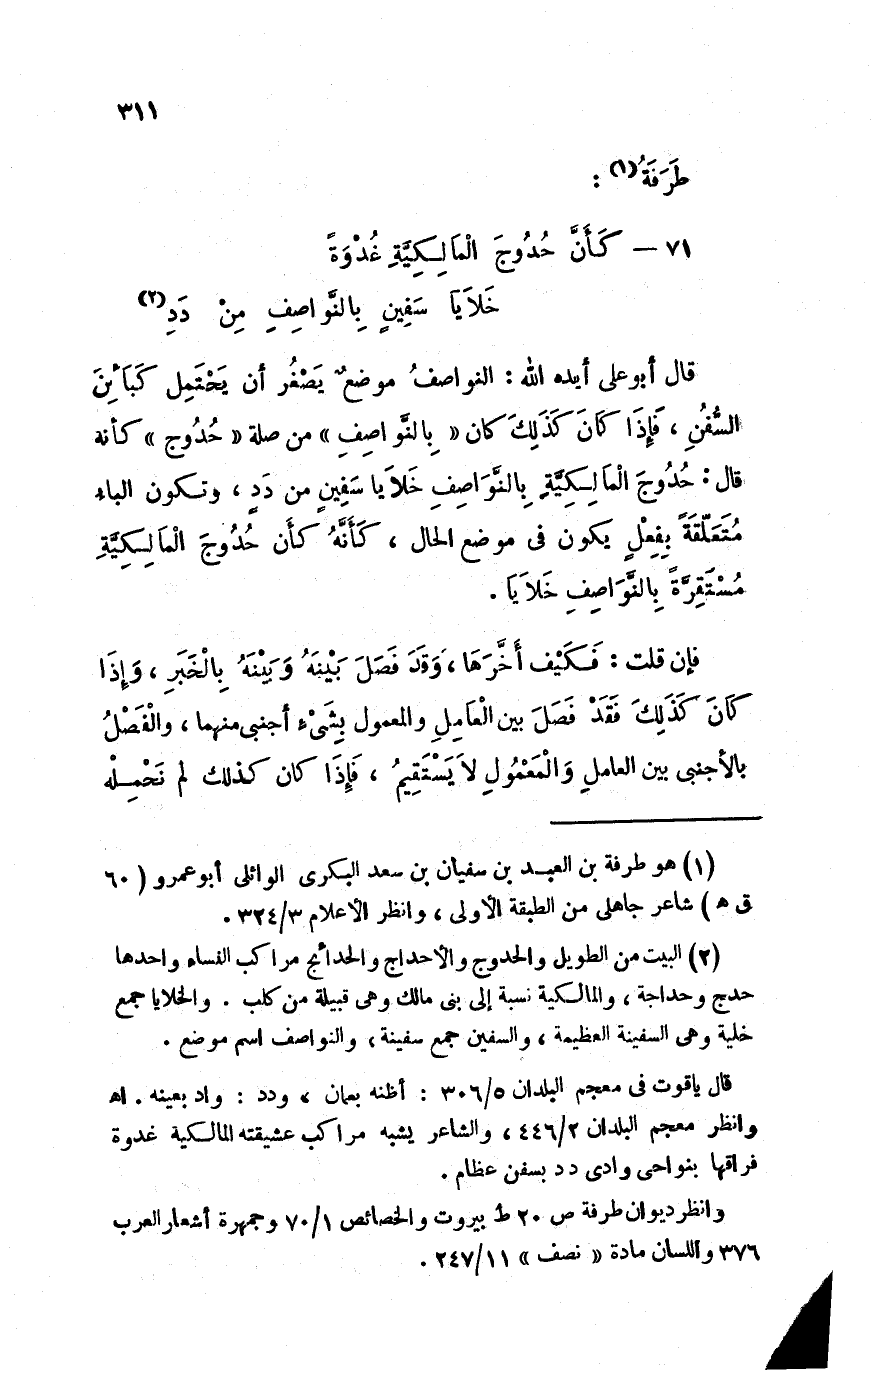 ٣١١
طَرَفَةُ(١) :
٧١ – كَأَنَّ حُدُوجَ الْمَالِكِيَّةِ غُدْوَةً
خَلاَيَا سَفِينٍ بِالنَّوَاصِفِ مِنْ دَدِ(٢)
قال أبو على أيده الله : النواصفُ موضعٌ يَصْغُر أن يَحْتَمِل كَبَائِنَ
السُّفُنِ ، فَإِذَا كَانَ كَذَلِكَ كان « بِالنَّوَاصِفِ » من صلة « حُدُوج » كأنه
قال : حُدُوجَ الْمَالِكِيَّةِ بِالنَّوَاصِفِ خَلاَيا سَفِينٍ من دَدٍ ، وتكون الباء
مُتَعَلّقَةً بِفِعْلٍ يكون فى موضع الحال ، كَأَنَّهُ كَأَن حُدُوجَ الْمَالِكِيَّةِ
مُسْتَقِرَّةً بِالنَّوَاصِفِ خَلاَيَا .
فإن قلت : فَكَيْف أَخَّرَهَا ، وَقَدَ فَصَلَ بَيْنَهُ وَبَيْنَهُ بِالْخَبَرِ ، وَإِذَا
كَانَ كَذَلِكَ فَقَدْ فَصَلَ بين الْعَامِلِ والمعمول بِشَىْءٍ أجنبى منهما ، والْفَصْلُ
بالأجنبى بين العاملِ وَالْمَعْمُولِ لاَ يَسْتَقِيمُ ، فَإِذَا كان كذلك لم نَحْمِلْه
(١) هو طرفة بن العبد بن سفيان بن سعد البكرى الوائلى أبو عمرو ( ٦٠
ق ه ) شاعر جاهلى من الطبقة الأولى ، وانظر الأعلام ٣٢٤/٣ .
(٢) البيت من الطويل والحدوج والأحداج والحدائج مراكب النساء واحدها
حدج وحداجة ، والمالكية نسبة إلى بنى مالك وهى قبيلة من كلب . والخلايا جمع
خلية وهى السفينة العظيمة ، والسفين جمع سفينة ، والنواصف اسم موضع .
قال ياقوت فى معجم البلدان ٣٠٦/٥ : أظنه بعمان ، ودد : واد بعينه . اه
وانظر معجم البلدان ٤٤٦/٢ ، والشاعر يشبه مراكب عشيقته المالكية غدوة
فراقها بنواحى وادى دد بسفن عظام .
وانظر ديوان طرفة ص ٢٠ ط بيروت والخصائص ٧٠/١ وجمهرة أشعار العرب
٣٧٦ واللسان مادة « نصف » ٢٤٧/١١ .